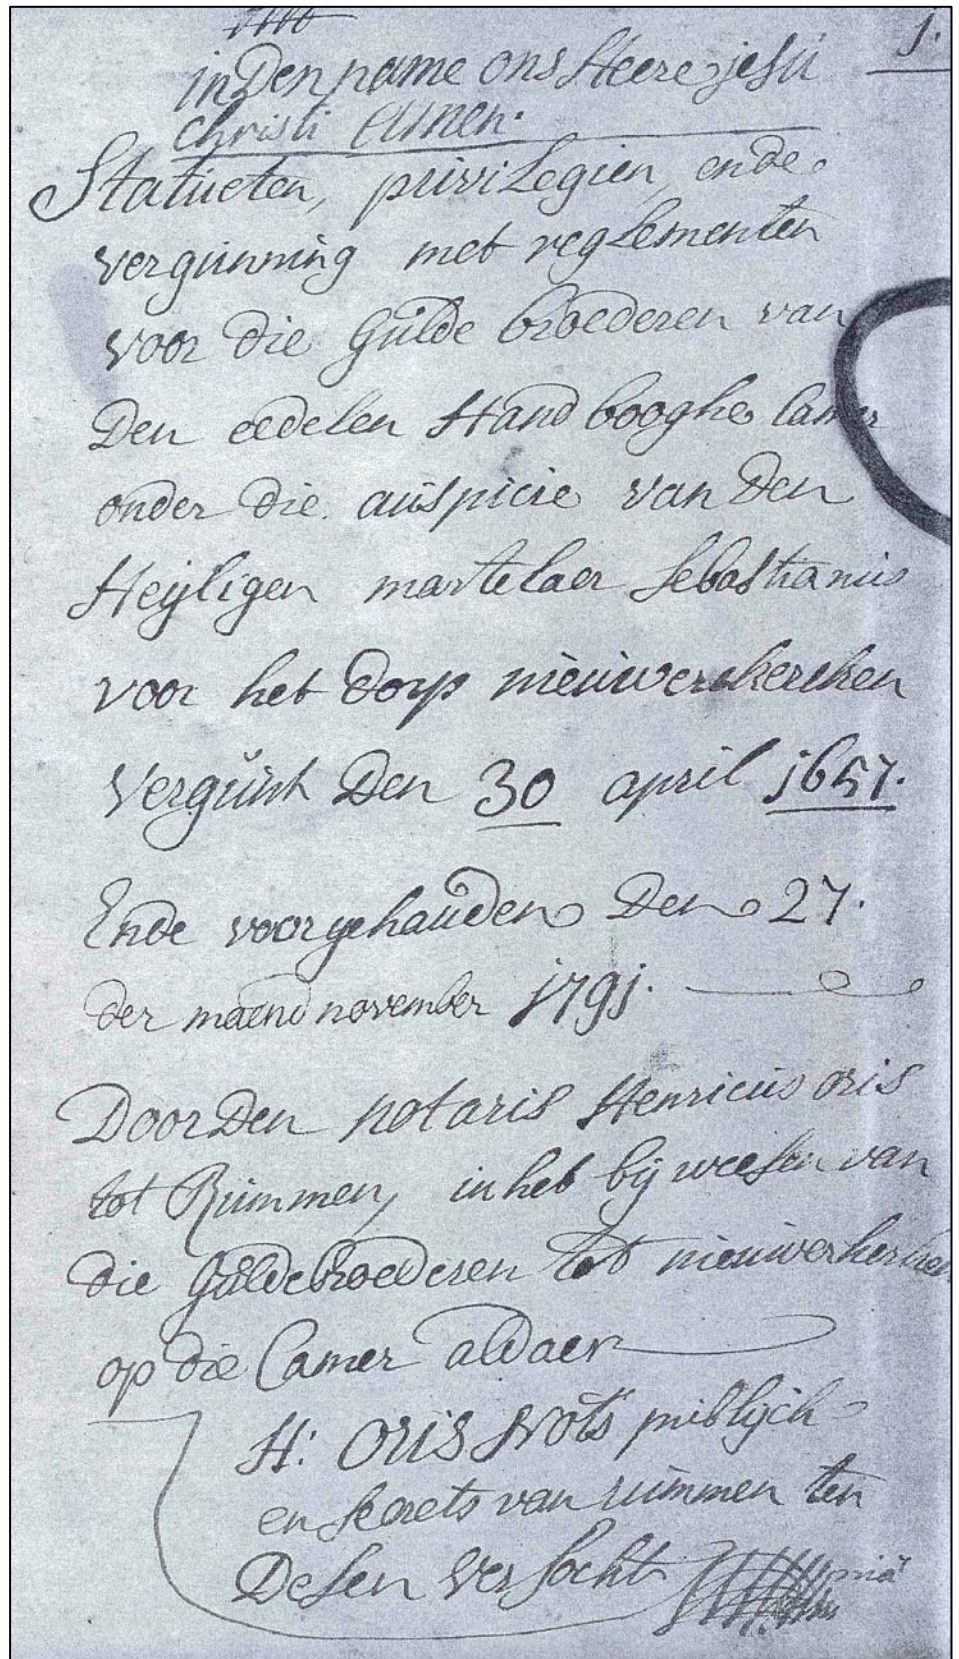 1.
in Den name ons Heere jesu
christi Amen.
Statueten, privilegien, ende
vergunning met reglementen
voor die Gulde broederen van
Den eedelen Hand booghe Camer
onder die auspicie van Den
Heyligen martelaer Sebastianus
voor het Dorp nieuwerckercken
Vergunt Den 30 april 1657.
Ende voorgehauden Den 27.
der maend november 1791.
Door Den notaris Henricus oris
tot Rummen, in het bij weesen van
die Guldebroederen tot nieuwerkercken
op die Camer aldaer
H: Oris Nots publijck
en Secrets van rummen ten
Desen Versocht